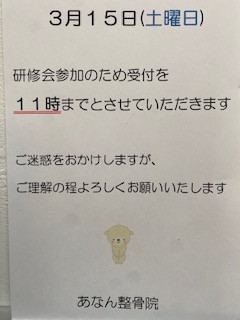 ３月１５日(土曜日)
研修会参加のため受付を
１１時までとさせていただきます
ご迷惑をおかけしますが、
ご理解の程よろしくお願いいたします
あなん整骨院